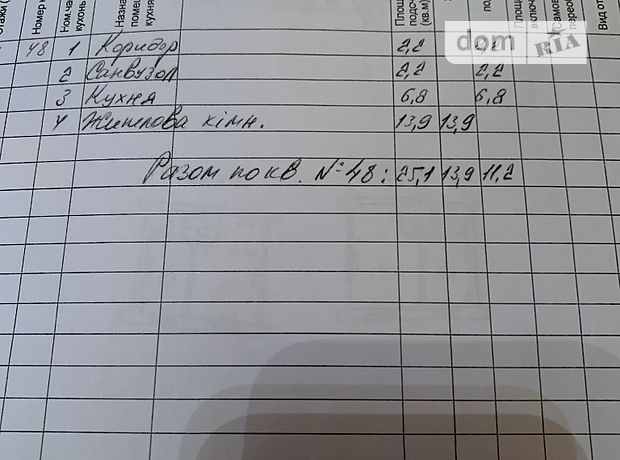 Номер
Ном.ча
кухонь
Назна
помец
кухня
Площ
подоч
(кв.м)
Площ
включ
Самов
переоб
Вид от
dom RIA
48 1 Коридор 2,2 2,2
2 Санвузол 2,2 2,2
3 Кухня 6,8 6,8
4 Житлова кімн. 13,9 13,9
Разом по кв. №48: 25,1 13,9 11,2